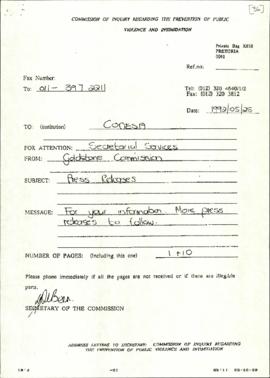 COMMISSION OF INQUIRY REGARDING THE PREVENTION OF PUBLIC
VIOLENCE AND INTIMIDATION
Private Bag X858
PRETORIA
0001
Ref.no:
Fax Number:
To: 011- 397 2211
Tel: (012) 320 4640/1/2
Fax: (012) 320 3812
Date: 1992/05/25
TO: (institution) CODESA
FOR ATTENTION: Secretarial Services
FROM: Goldstone Commission
SUBJECT: Press Releases
MESSAGE: For your information. More press
releases to follow.
NUMBER OF PAGES: (Including this one) 1+10
Please phone immediately if all the pages are not received or if there are illegible
parts.
SECRETARY OF THE COMMISSION
ADDRESS LETTERS TO SECRETARY: COMMISSION OF INQUIRY REGARDING
THE PREVENTION OF PUBLIC VIOLENCE AND INTIMIDATION